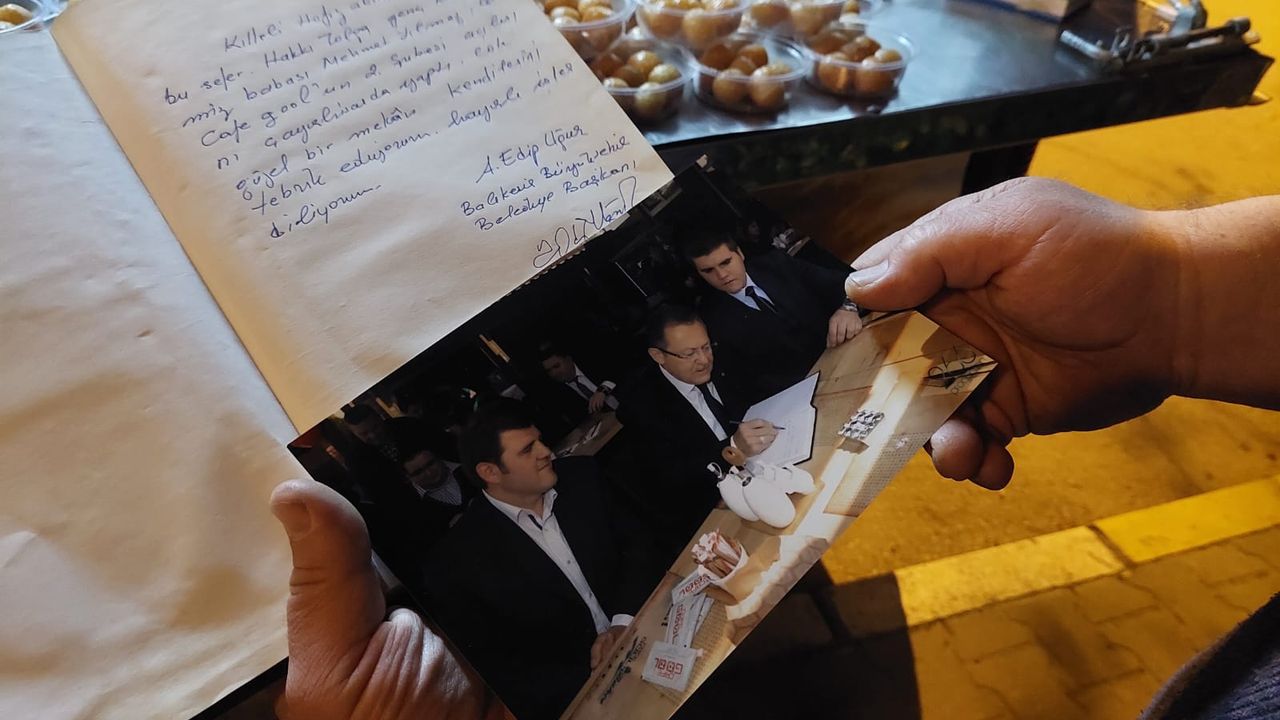 Killeli Hafız
bu sefer. Hakkı Tolga genç
miz babası Mehmet Yılmaz,
Cafe gool'un 2. Şubesi açılışı
nı Çayırhisarda yaptı, çok
güzel bir mekân kendilerini
tebrik ediyorum. hayırlı işler
diliyorum.
A. Edip Uğur
Balıkesir Büyükşehir
Belediye Başkanı